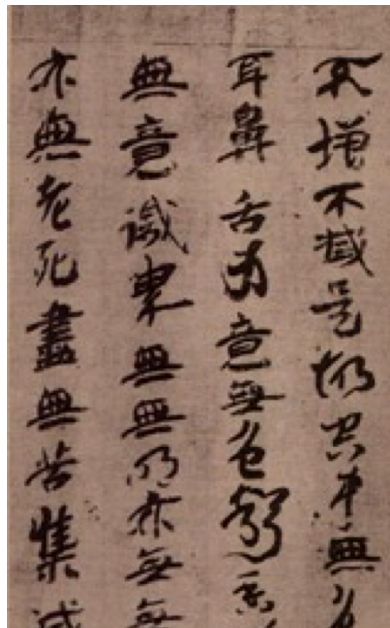 不增不減是故空中無色
耳鼻舌身意無色聲香
無意識界無無明亦無無
亦無老死盡無苦集滅